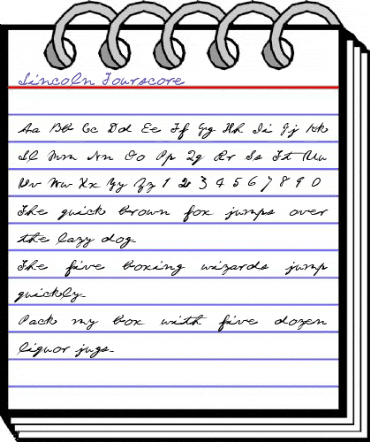 Lincoln Fourscore
Aa Bb Cc Dd Ee Ff Gg Hh Ii Jj Kk
Ll Mm Nn Oo Pp Qq Rr Ss Tt Uu
Vv Ww Xx Yy Zz 1 2 3 4 5 6 7 8 9 0
The quick brown fox jumps over
the lazy dog.
The five boxing wizards jump
quickly.
Pack my box with five dozen
liquor jugs.